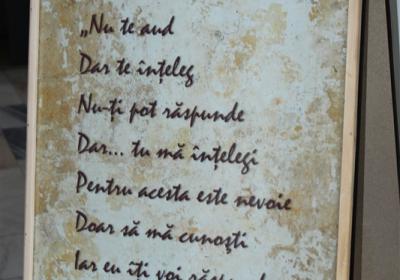 „Nu te aud
Dar te înțeleg
Nu-ti pot răspunde
Dar... tu mă înțelegi
Pentru acesta este nevoie
Doar să mă cunoști
Iar eu iti voi